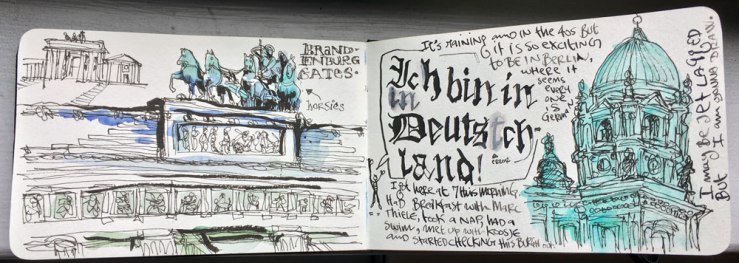 BRAND-
ENBURG
GATES.
horsies
It's raining and in the 40s but
it is so exciting
to be in Berlin,
where it
seems
every
one
is
German
Ich bin in
Deutsch-
land!
I got here at 7 this morning,
had breakfast with Marc
Thiele, took a nap, had a
swim, met up with Koosje
and started checking this burgh out.
I may be JET LAGGED
But I am gonna DRAW.